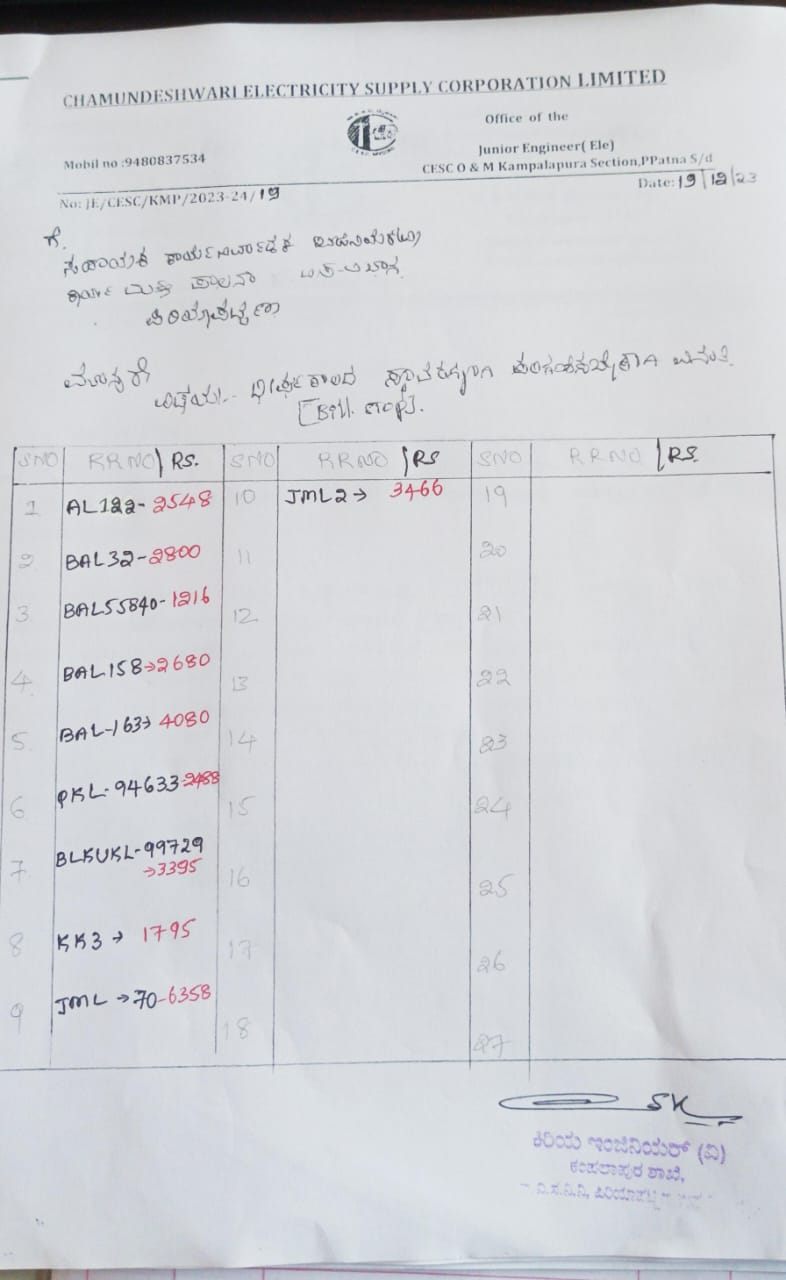 CHAMUNDESHWARI ELECTRICITY SUPPLY CORPORATION LIMITED
Office of the
Mobil no :9480837534
Junior Engineer( Ele)
CESC O & M Kampalapura Section,PPatna S/d
No: JE/CESC/KMP/2023-24/19
Date: 19/12/23
ಗೆ.
ಸಹಾಯಕ ಕಾರ್ಯನಿರ್ವಾಹಕ
ಕಾರ್ಯ ಮತ್ತು ಪಾಲನಾ
ಪಿರಿಯಾಪಟ್ಟಣ
ಮಾನ್ಯರೇ
ವಿಷಯ:- ದೀರ್ಘಕಾಲದ
[Bill
SNO RRNO/RS. SNO RRNO/RS SNO RRNO/RS.
1 AL122-2548 10 JML2→ 3466 19
2 BAL32-2800 11 20
3 BAL55840-1216 12 21
4 BAL158→2680 13 22
5 BAL-163→ 4080 14 23
6 PKL-94633-2488 15 24
7 BLKUKL-99729
→3395 16 25
8 KK3→ 1795 17 26
9 JML→70-6358 18 27
ಕಿರಿಯ ಇಂಜಿನಿಯರ್ (ವಿ)
ಕಂಪಲಾಪುರ ಶಾಖೆ,
ವಿ.ಸ.ನಿ.ನಿ, ಪಿರಿಯಾಪಟ್ಟ